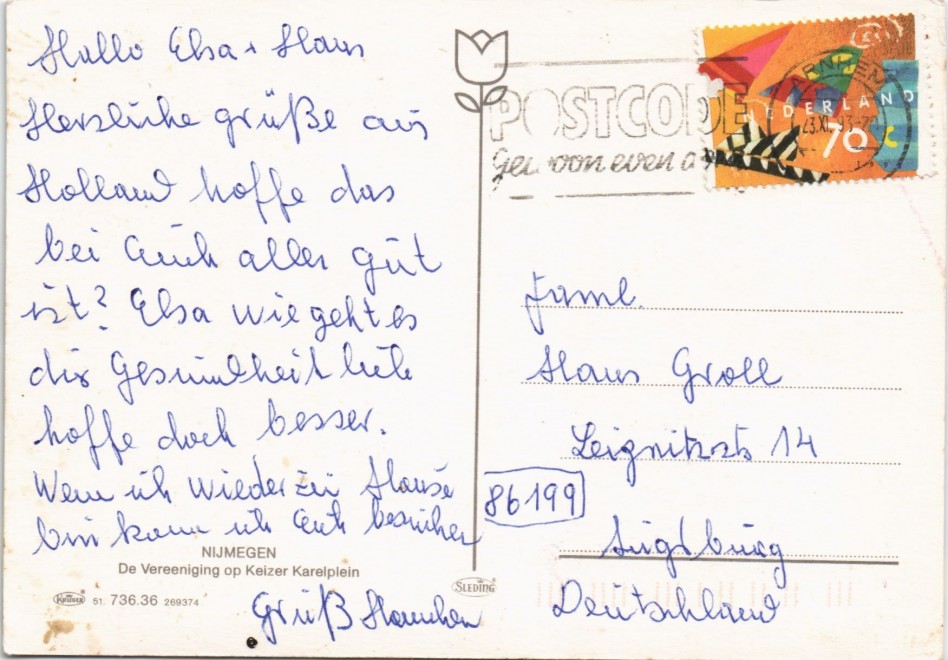 Hallo Elsa + Hans
Herzliche grüße aus
Holland hoffe das
bei Euch alles gut
ist? Elsa wie geht es
dir Gesundheitliche
hoffe doch besser.
Wenn ich wieder zu Hause
bin komm ich Euch besuchen
Gruß Hannchen
NIJMEGEN
De Vereeniging op Keizer Karelplein
KRÜGER 51. 736.36 269374
SLEDING
POSTCODE
gewoon even
ARNHEM
NEDERLAND
70 c
Faml.
Hans Groll
Leignitzstr 14
86199
Augsburg
Deutschland